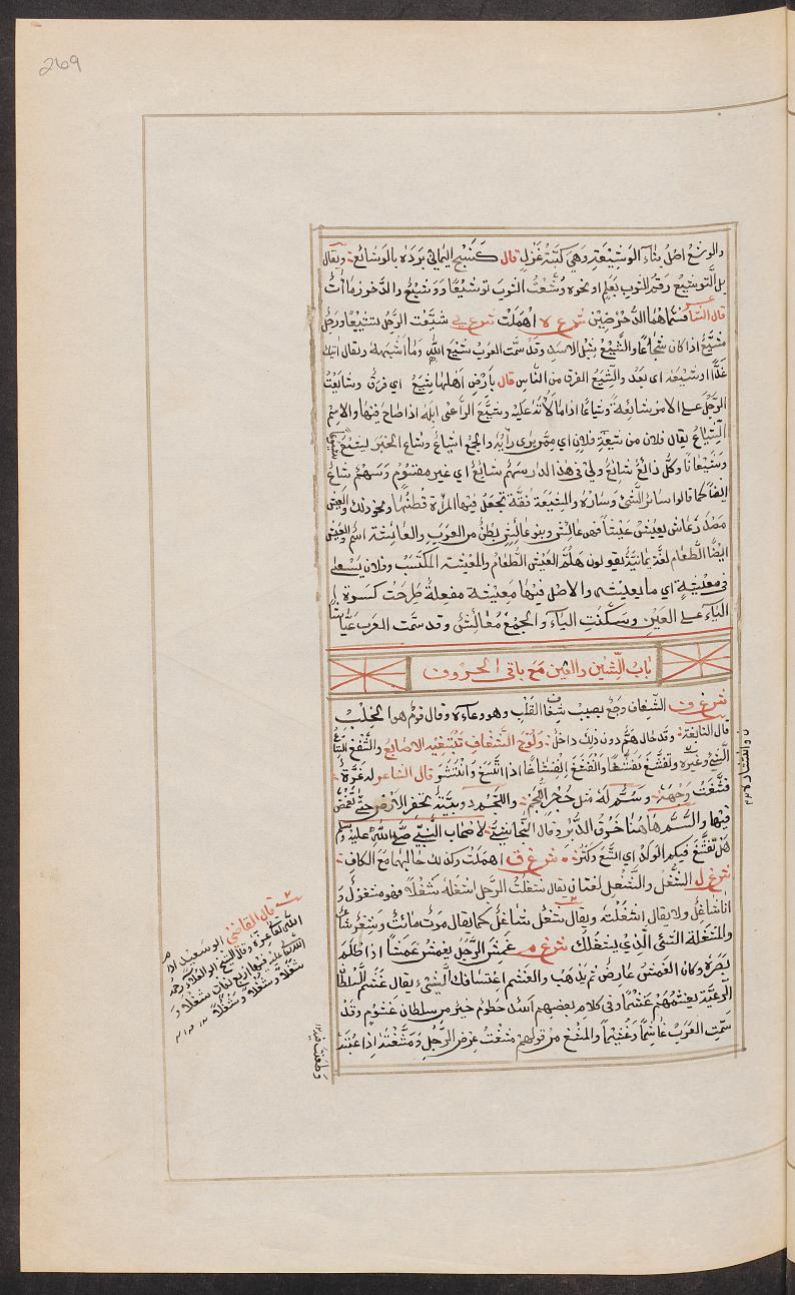 269
والوشع اصل بناء الوَشِيْعَةِ وَهِيَ كُبَّةُ غَزْلٍ قال كَنَسْجِ اليماني بُرْدَهُ بالوَشائع ويقال
بل التوشيع رقم الثوب بعَلَمٍ او نحوه وَشَّعْتُ الثوبَ توشيعًا ووشيع والدخرضُ ماآن
قال الشاعر فثناهما الدحرضين ش ع ه اهملت ش ع ي شَيَّعْتُ الرجل تشييعًا ورجل
مشيَّع اذا كان شجاعًا والشَّيْعُ شِبْلُ الاسد وقد سمّت العرب شَيْعَ اللهِ وما اشبهه ويقال اتيك
غدًا او شيعَه اى بَعْدَ والشِّيَعُ الفِرَق من الناس قال بأرْضٍ اهلُها شِيَع اي فِرَق وشايَعْتُ
الرَّجُلَ على الامر مشايعةً وشياعًا اذا مالأته عليه وشَيَّعَ الراعى ابله اذا صاح فيها والاسم
الشِّياعُ يقال فلان من شيعة فلان اي ممن يرى رأيه والجمع اشياع وشاع الخبر يشيع
وشيعانًا وكلُّ ذائع شائع ولي فى هذا الدار سهم شائع اي غير مقسوم وسهم شاعٌ
ايضًا كما قالوا سائر الشئ وساره والشيعة قُفَّة تجعل فيها المرأة قطنها ونحو ذلك والعيش
مصدر عاش يعيش عيشًا فهو عائش وبنو عائش بطن من العرب والعائشة اسم والعيش
ايضًا الطعام لغة يمانية يقولون هَلُمَّ العيش الطعام والمعيشة المكتسب وفلان يسعى
فى معيشةٍ اي ما يعيشه والاصل فيها معيشة مفعلة طرحت كسرة
الياء على العين وسكنت الياء والجمع معائش وقد سمّت العرب عيّاشًا
باب الشين والغين مع باقي الحروف
ش غ ف الشغاف وجع يصيب شغاف القلب وهو وعاؤه وقال قوم هو الخِلْب
قال النابغة وقد حال همٌّ دون ذلك داخلٌ ولوج الشغاف تبتغيه الاصابع والشفغ
الشئ وغيره وتفشّغ تفشّغًا وانفشغ انفشاغًا اذا اتّسع وانتشر قال الشاعر له غُرَّةٌ
فشَغَتْ وجهه وسُمٌّ له مثل جُحْر اللُّجَم واللُّجَم دويبّة تحفر الارض حتى تغمض
فيها والسُّمُّ هاهنا خرق الدبر وقال النجاشيُّ لاصحاب النبي صلى الله عليه وسلم
هل تفشّغ فيكم الولد اي اتسع وكثر ش غ ق اهملت وكذلك حالها مع الكاف
ش غ ل الشُّغْل والشَّغْل لغتان يقال شغلتُ الرجل اشغله شغلًا فهو مشغول و
انا شاغل ولا يقال اشغلته ويقال شغل شاغل كما يقال موت مائت وشعر شاعر
والمشغلة الشئ الذي يشغلك ش غ م غمش الرجل يغمش غمشًا اذا اظلم
بصره وكان الغمش عارض ثم يذهب والغشم اعتسافك الشئ يقال غشم السلطان
الرعيّة يغشمهم غشمًا وفي كلام بعضهم اسد حطوم خير من سلطان غشوم وقد
سمّت العرب غاشمًا وغشيمًا والمشغ من قولهم مشغت عرض الرجل ومشّغته اذا عبته
قال القاضي ابو سعيد
وقال الشيخ ابو العلاء رحمه
الله فيها اربع لغات شغلا و
شُغُلًا وشَغَلًا وشَغْلَةً